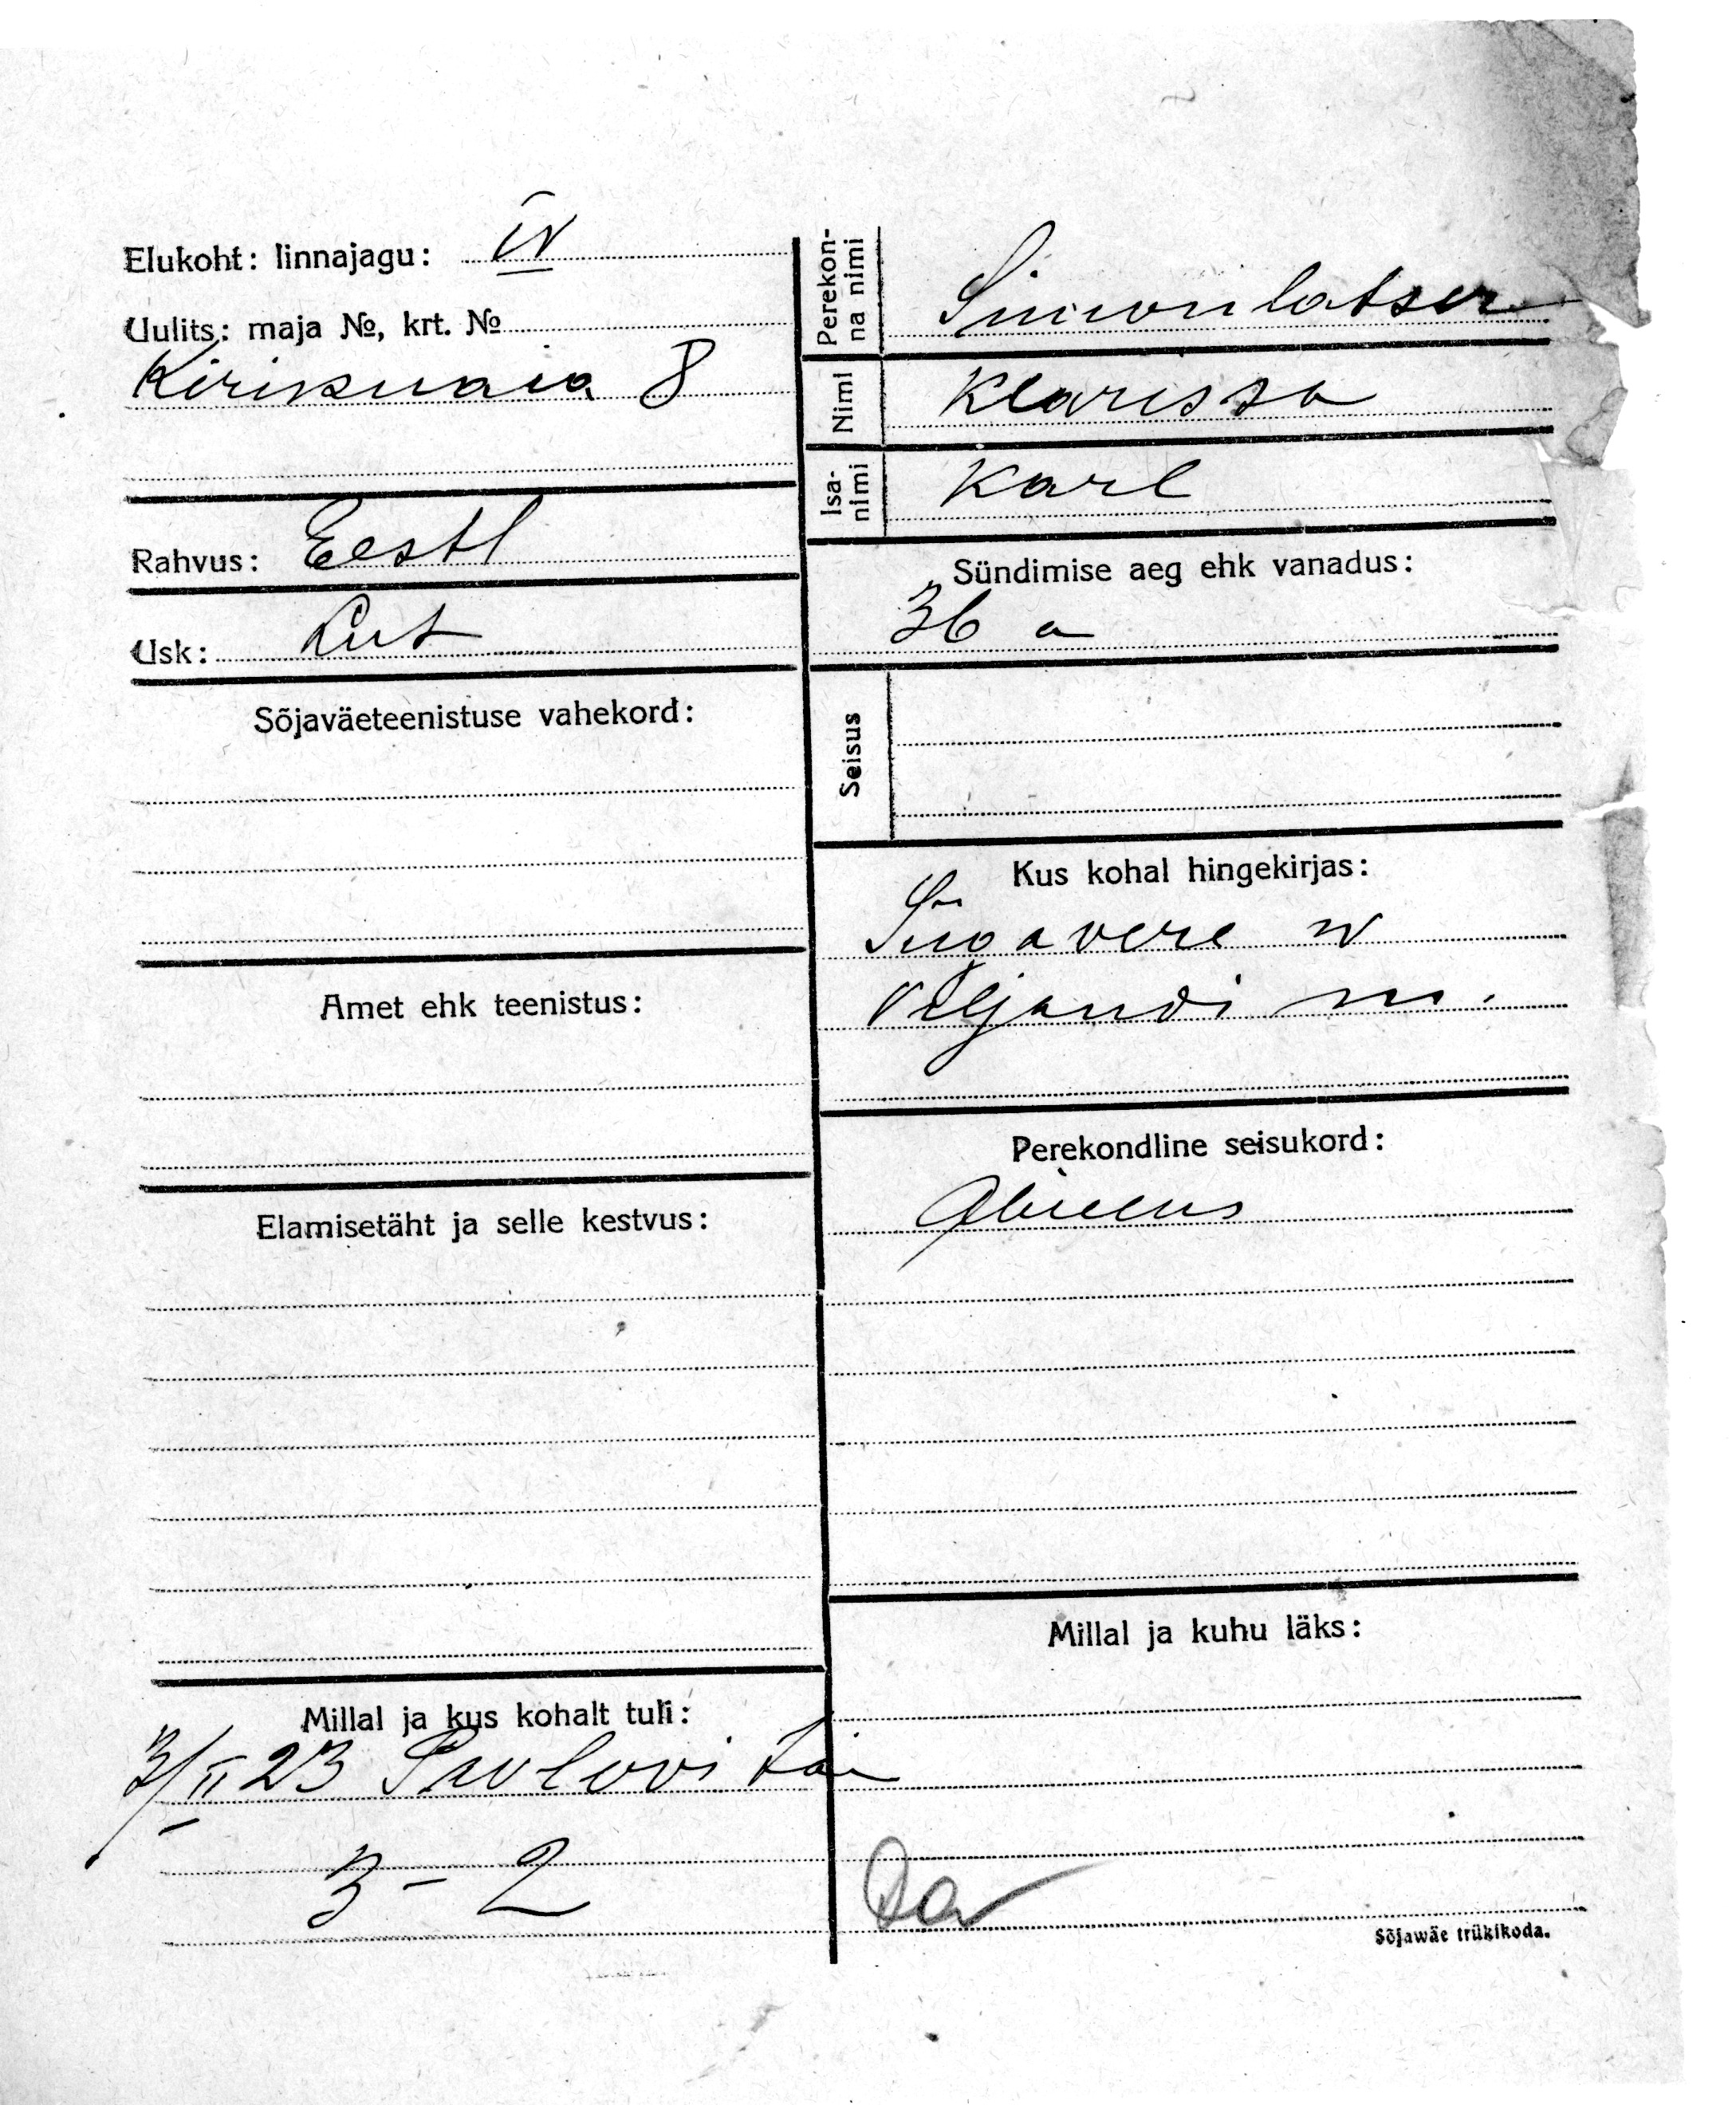 Elukoht: linnajagu: IV
Uulits: maja №, krt. №
Kirikuaia 8
Rahvus: Eestl
Usk: Lut
Sõjaväeteenistuse vahekord:
Amet ehk teenistus:
Elamisetäht ja selle kestvus:
Millal ja kus kohalt tuli:
3/II 23 Pavlovi tän
3 – 2
Perekon-
na nimi
Simonlatser
Nimi Klarissa
Isa-
nimi
Karl
Sündimise aeg ehk vanadus:
36 a
Seisus
Kus kohal hingekirjas:
w
Viljandi m.
Perekondline seisukord:
Abielus
Millal ja kuhu läks:
Sõjawäe trükikoda.